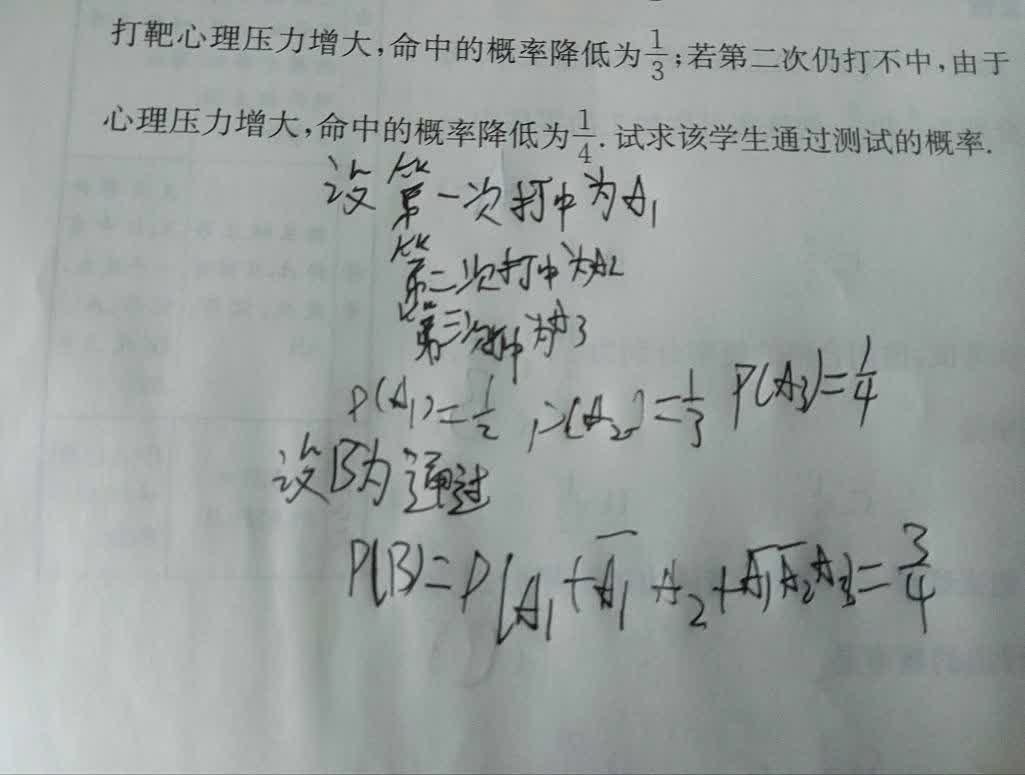 打靶心理压力增大,命中的概率降低为1/3;若第二次仍打不中,由于
心理压力增大,命中的概率降低为1/4.试求该学生通过测试的概率.
设 第一次打中为A₁
第二次打中为A₂
第三次打中为A₃
P(A₁)=1/2 , P(A₂)=1/3 P(A₃)=1/4
设B为通过
P(B)=P(A₁+A̅₁A₂+A̅₁A̅₂A₃)=3/4